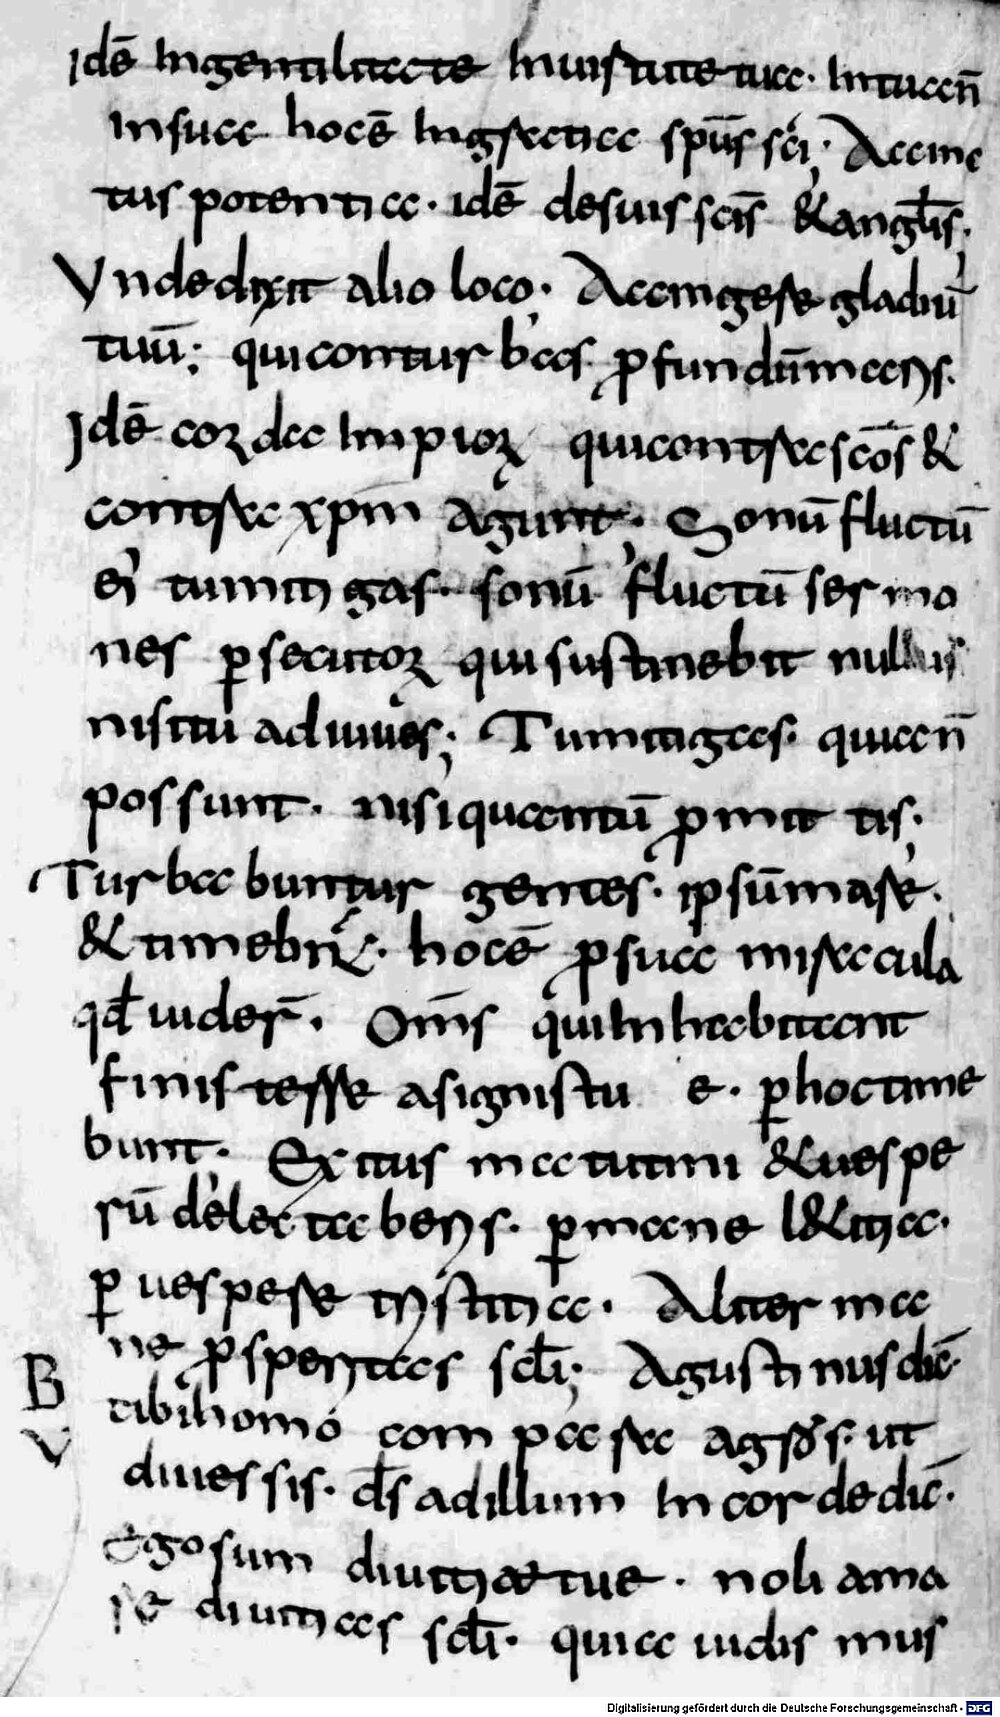 idē in gentilitate in uirtute tua· in tua cñ
in sua hoc ē in gratia sp̄us sc̄i; Accinc
tus potentia· idē de suis sc̄is & angl̄is;
Vnde dixit alio loco· Accingere gladiū
tuū; qui conturbas p̄fundūm aris·
Idē corꝝ da impiorꝝ qui contra sc̄os &
contra xp̄m agunt; Sonū fluctū
ei' tu mitigas· sonū fluctū sermo
nes ꝑsecutorꝝ qui sustinebit nullus
nisi tū adiuues; Tu mitigas· quia ñ
possunt· nisi quantū p̄mittis·
Turbabuntur gentes· ipsūm mare·
& timebr̄· hoc ē p̄ sua miracula
qd̄ uider̄· Om̄s qui inhabitant
finis terre a signis tu e· ꝑ hoc time
bunt; Exitus matutini & uespe
rū delectaberis· ꝑ mane l&itia·
ꝑ uespere tristitia· Aliter ma
ne p̄speritas scl̄i; Agustinus dic̄·
tibi homo compara agrōs· ut
diues sis· d̄s ad illum in corde dic̄·
ego sum diuitiæ tue· noli ama
re diuitias scl̄i· quia uidis mus
B
V
Digitalisierung gefördert durch die Deutsche Forschungsgemeinschaft · DFG